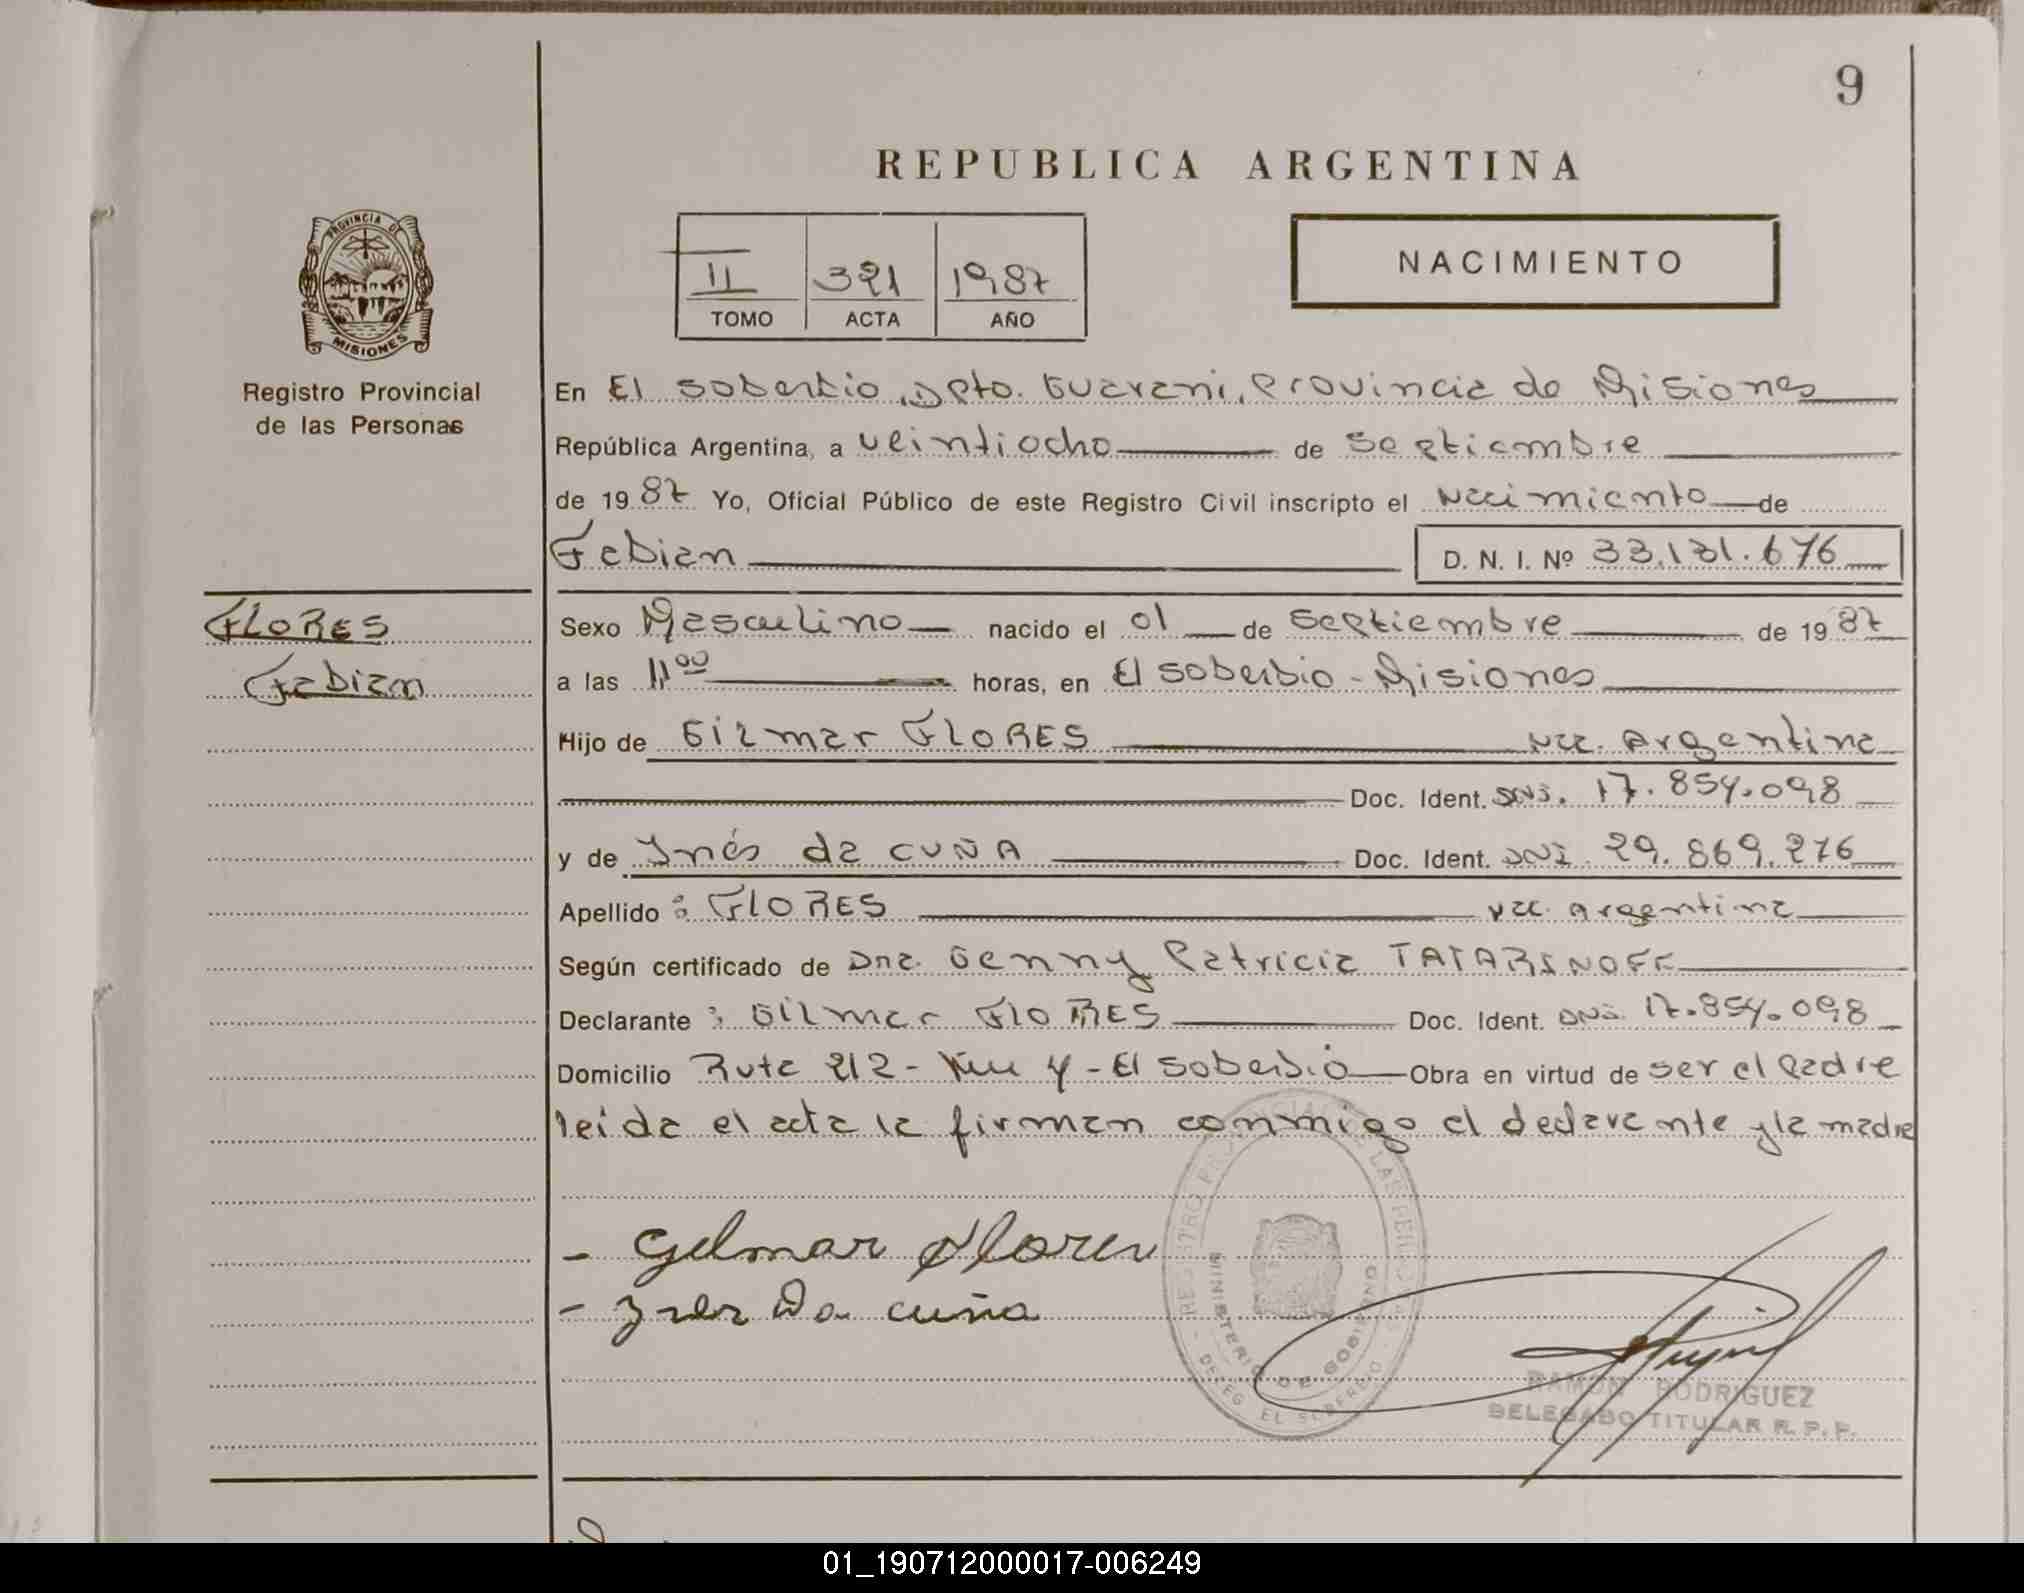 9
REPUBLICA ARGENTINA
PROVINCIA DE
MISIONES
Registro Provincial
de las Personas
II 321 1987
TOMO ACTA AÑO
NACIMIENTO
En El Soberbio, Dpto. Guarani, Provincia de Misiones
República Argentina, a veintiocho de Septiembre
de 1987 Yo, Oficial Público de este Registro Civil inscripto el Nacimiento de
Fabian D. N. I. Nº 33.131.676
FLORES
Fabian
Sexo Masculino nacido el 01 de Septiembre de 1987
a las 11⁰⁰ horas, en El Soberbio - Misiones
Hijo de Gilmar FLORES Nac. Argentina
Doc. Ident. DNI. 17.854.098
y de Ynés da CUÑA Doc. Ident. DNI. 29.869.276
Apellido : FLORES Nac. Argentina
Según certificado de Dra. Genny Patricia TATARINOFF
Declarante : Gilmar FLORES Doc. Ident. DNI. 17.854.098
Domicilio Ruta 212 - Km 4 - El Soberbio Obra en virtud de ser el Padre
leida el acta la firman conmigo el declarante y la madre
- Gelmar Flores
- Ines Da cuña
REGISTRO PROVINCIAL DE LAS PERSONAS
MINISTERIO DE GOBIERNO
DELEG. EL SOBERBIO
RAMON RODRIGUEZ
DELEGADO TITULAR R. P. P.
01_190712000017-006249